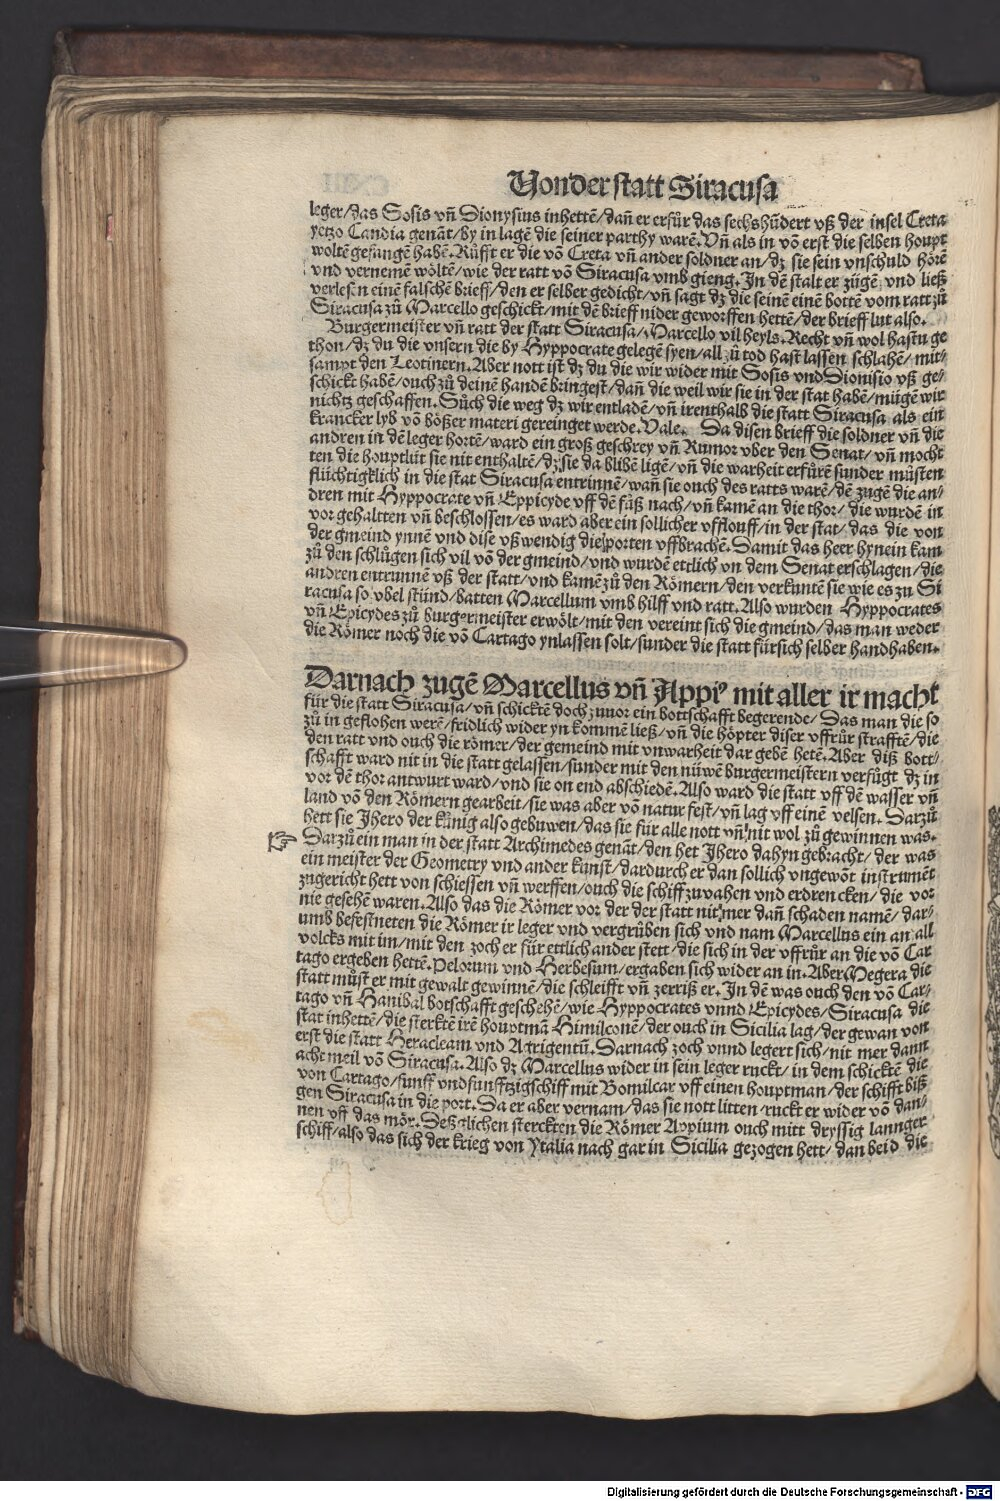 Von der statt Siracusa
leger/das Sosis vñ Dionysius inhettẽ/dañ er erfůr das sechshũdert vß der insel Creta
yetzo Candia genãt/by in lagẽ die seiner parthy warẽ. Vñ als in võ erst die selben houpt
woltẽ gefangẽ habẽ. Růfft er die võ Creta vñ ander soldner an/dz sie sein vnschuld hörẽ
vnd vernemẽ wöltẽ/wie der ratt võ Siracusa vmb gieng. In dẽ stalt er zügẽ und ließ
verlesen einẽ falschẽ brieff/den er selber gedicht/vñ sagt dz die seinẽ einẽ bottẽ vom ratt zů
Siracusa zů Marcello geschickt/mit dẽ brieff nider geworffen hettẽ/der brieff lut also.
Burgermeister vñ ratt der statt Siracusa/Marcello vil heyls. Recht vñ wol hastu ge
thon/dz du die vnsern die by Hyppocrate gelegẽ syen/all zů tod hast lassen schlahẽ/mit/
sampt den Leotinern. Aber nott ist dz du die wir wider mit Sosis vnd Dionisio vß ge/
schickt habẽ/ouch zů deinẽ handẽ bringest/dañ die weil wir sie in der stat habẽ/mügẽ wir
nichtz geschaffen. Sůch die weg dz wir entladẽ/vñ irenthalb die statt Siracusa als ein
krancker lyb võ bößer materi gereinget werde. Vale. Da disen brieff die soldner vñ die
andren in dẽ leger hortẽ/ward ein groß geschrey vñ Rumor vber den Senat/vñ moch
ten die houptlüt sie nit enthaltẽ/dz sie da blibẽ ligẽ/vñ die warheit erfürẽ sunder můsten
flüchtigklich in die stat Siracusa entrinnẽ/wañ sie ouch des ratts warẽ/dẽ zugẽ die an/
dren mit Hyppocrate vñ Eppicyde vff dẽ fůß nach/vñ kamẽ an die thor/die wurdẽ in
vor gehaltten vñ beschlossen/es ward aber ein sollicher vfflouff/in der stat/das die von
der gmeind ynnẽ vnd dise vßwendig die porten vffbrachẽ. Damit das heer hynein kam
zů den schlůgen sich vil võ der gmeind/vnd wurdẽ ettlich vn dem Senat erschlagen/die
andren entrunnẽ vß der statt/vnd kamẽ zů den Römern/den verkuntẽ sie wie es zu Si
racusa so vbel stünd/batten Marcellum vmb hilff vnd ratt. Also wurden Hyppocrates
vñ Epicydes zů burgermeister erwölt/mit den vereint sich die gmeind/das man weder
die Römer noch die võ Cartago ynlassen solt/sunder die statt fürsich selber handhaben.
Darnach zugẽ Marcellus vñ Appiꝰ mit aller ir macht
für die statt Siracusa/vñ schicktẽ doch zuuor ein bottschafft begerende/Das man die so
zů in geflohen werẽ/fridlich wider yn kommẽ ließ/vñ die höpter diser vffrůr strafftẽ/die
den ratt vnd ouch die römer/der gemeind mit vnwarheit dar gebẽ hetẽ. Aber diß bott/
schafft ward nit in die statt gelassen/sunder mit den nüwẽ burgermeistern verfůgt dz in
vor dẽ thor antwurt ward/vnd sie on end abschiedẽ. Also ward die statt vff dẽ wasser vñ
land võ den Römern gearbeit/sie was aber võ natur fest/vñ lag vff einẽ velsen. Darzů
hett sie Jhero der künig also gebuwen/das sie für alle nott vñ nit wol zů gewinnen was.
Darzů ein man in der statt Archimedes genãt/den het Jhero dahyn gebracht/der was
ein meister der Geometry vnd ander kunst/dardurch er dan sollich vngewõt instrumẽt
zugericht hett von schiessen vñ werffen/ouch die schiff zuvahen vnd erdrencken/die vor
nie gesehẽ waren. Also das die Römer vor der der statt nit mer dañ schaden namẽ/dar/
umb befestneten die Römer ir leger vnd vergrůben sich vnd nam Marcellus ein anzall
volcks mit im/mit den zoch er für ettlich ander stett/die sich in der vffrůr an die võ Car
tago ergeben hettẽ. Pelorum vnd Herbesum/ergaben sich wider an in. Aber Megera die
statt můst er mit gewalt gewinnẽ/die schleifft vñ zerriß er. In dẽ was ouch den võ Car/
tago vñ Hanibal botschafft geschehẽ/wie Hyppocrates vnnd Epicydes/Siracusa die
stat inhettẽ/die sterktẽ irẽ houptmã Himilconẽ/der ouch in Sicilia lag/der gewan von
erst die statt Heracleam vnd Agrigentũ. Darnach zoch vnnd legert sich/nit mer dann
acht meil võ Siracusa. Also dz Marcellus wider in sein leger ruckt/in dem schicktẽ die
von Cartago/funff vnd funfftzig schiff mit Bomilcar vff einen houptman/der schifft biß
gen Siracusa in die port. Da er aber vernam/das sie nott litten/ruckt er wider võ dan/
nen vff das mör. Deßglichen sterckten die Römer Appium ouch mitt dryssig lannger
schiff/also das sich der krieg von Ytalia nach gar in Sicilia gezogen hett/dan beid die
Digitalisierung gefördert durch die Deutsche Forschungsgemeinschaft - DFG